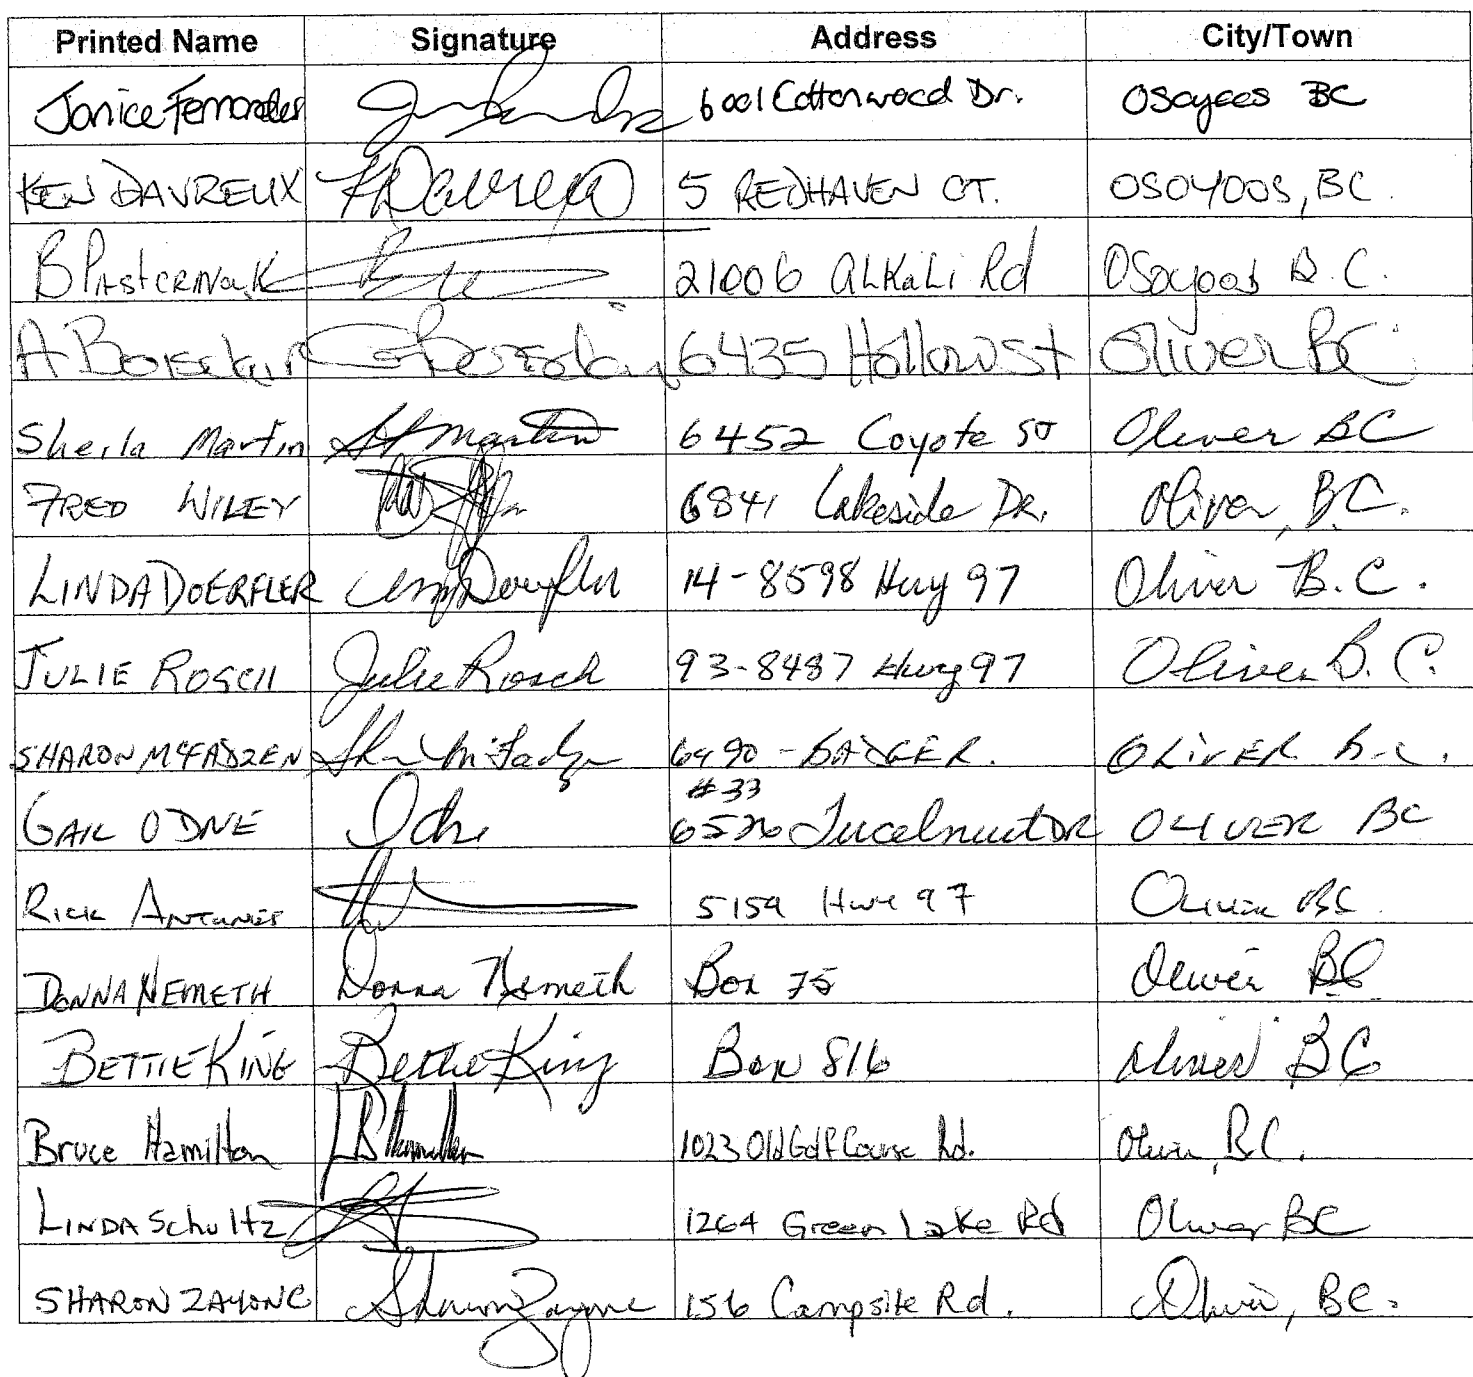 Printed Name Signature Address City/Town
Janice Fernandes 6001 Cottonwood Dr. Osoyoos BC
KEN DAVREUX KDavreux 5 REDHAVEN CT. OSOYOOS, BC.
B Pasternak 21006 ALKaLi Rd Osoyoos B.C.
A 6435 Hollow St Oliver BC
Sheila Martin SA Martin 6452 Coyote ST Oliver BC
FRED WILEY 6841 Lakeside DR. Oliver, B.C.
LINDA DOERFLER Doerfler 14-8598 Hwy 97 Oliver B.C.
JULIE ROSCH Julie Rosch 93-8487 Hwy 97 Oliver B.C.
SHARON MCFADZEN 6490 - BADGER. OLIVER B.C.
#33
GAIL ODNE Odne 6526 DR OLIVER BC
RICK ANTUNES 5159 Hwy 97 Oliver BC
DONNA NEMETH Donna Nemeth Box 75 Oliver BC
BETTIE KING Bettie King Box 816 Oliver BC
Bruce Hamilton B Hamilton 1023 Old Golf Course Rd. Oliver, B.C.
LINDA Schultz 1264 Green Lake Rd Oliver BC
SHARON ZAYONC Sharon Zayonc 156 Campsite Rd. Oliver, BC.